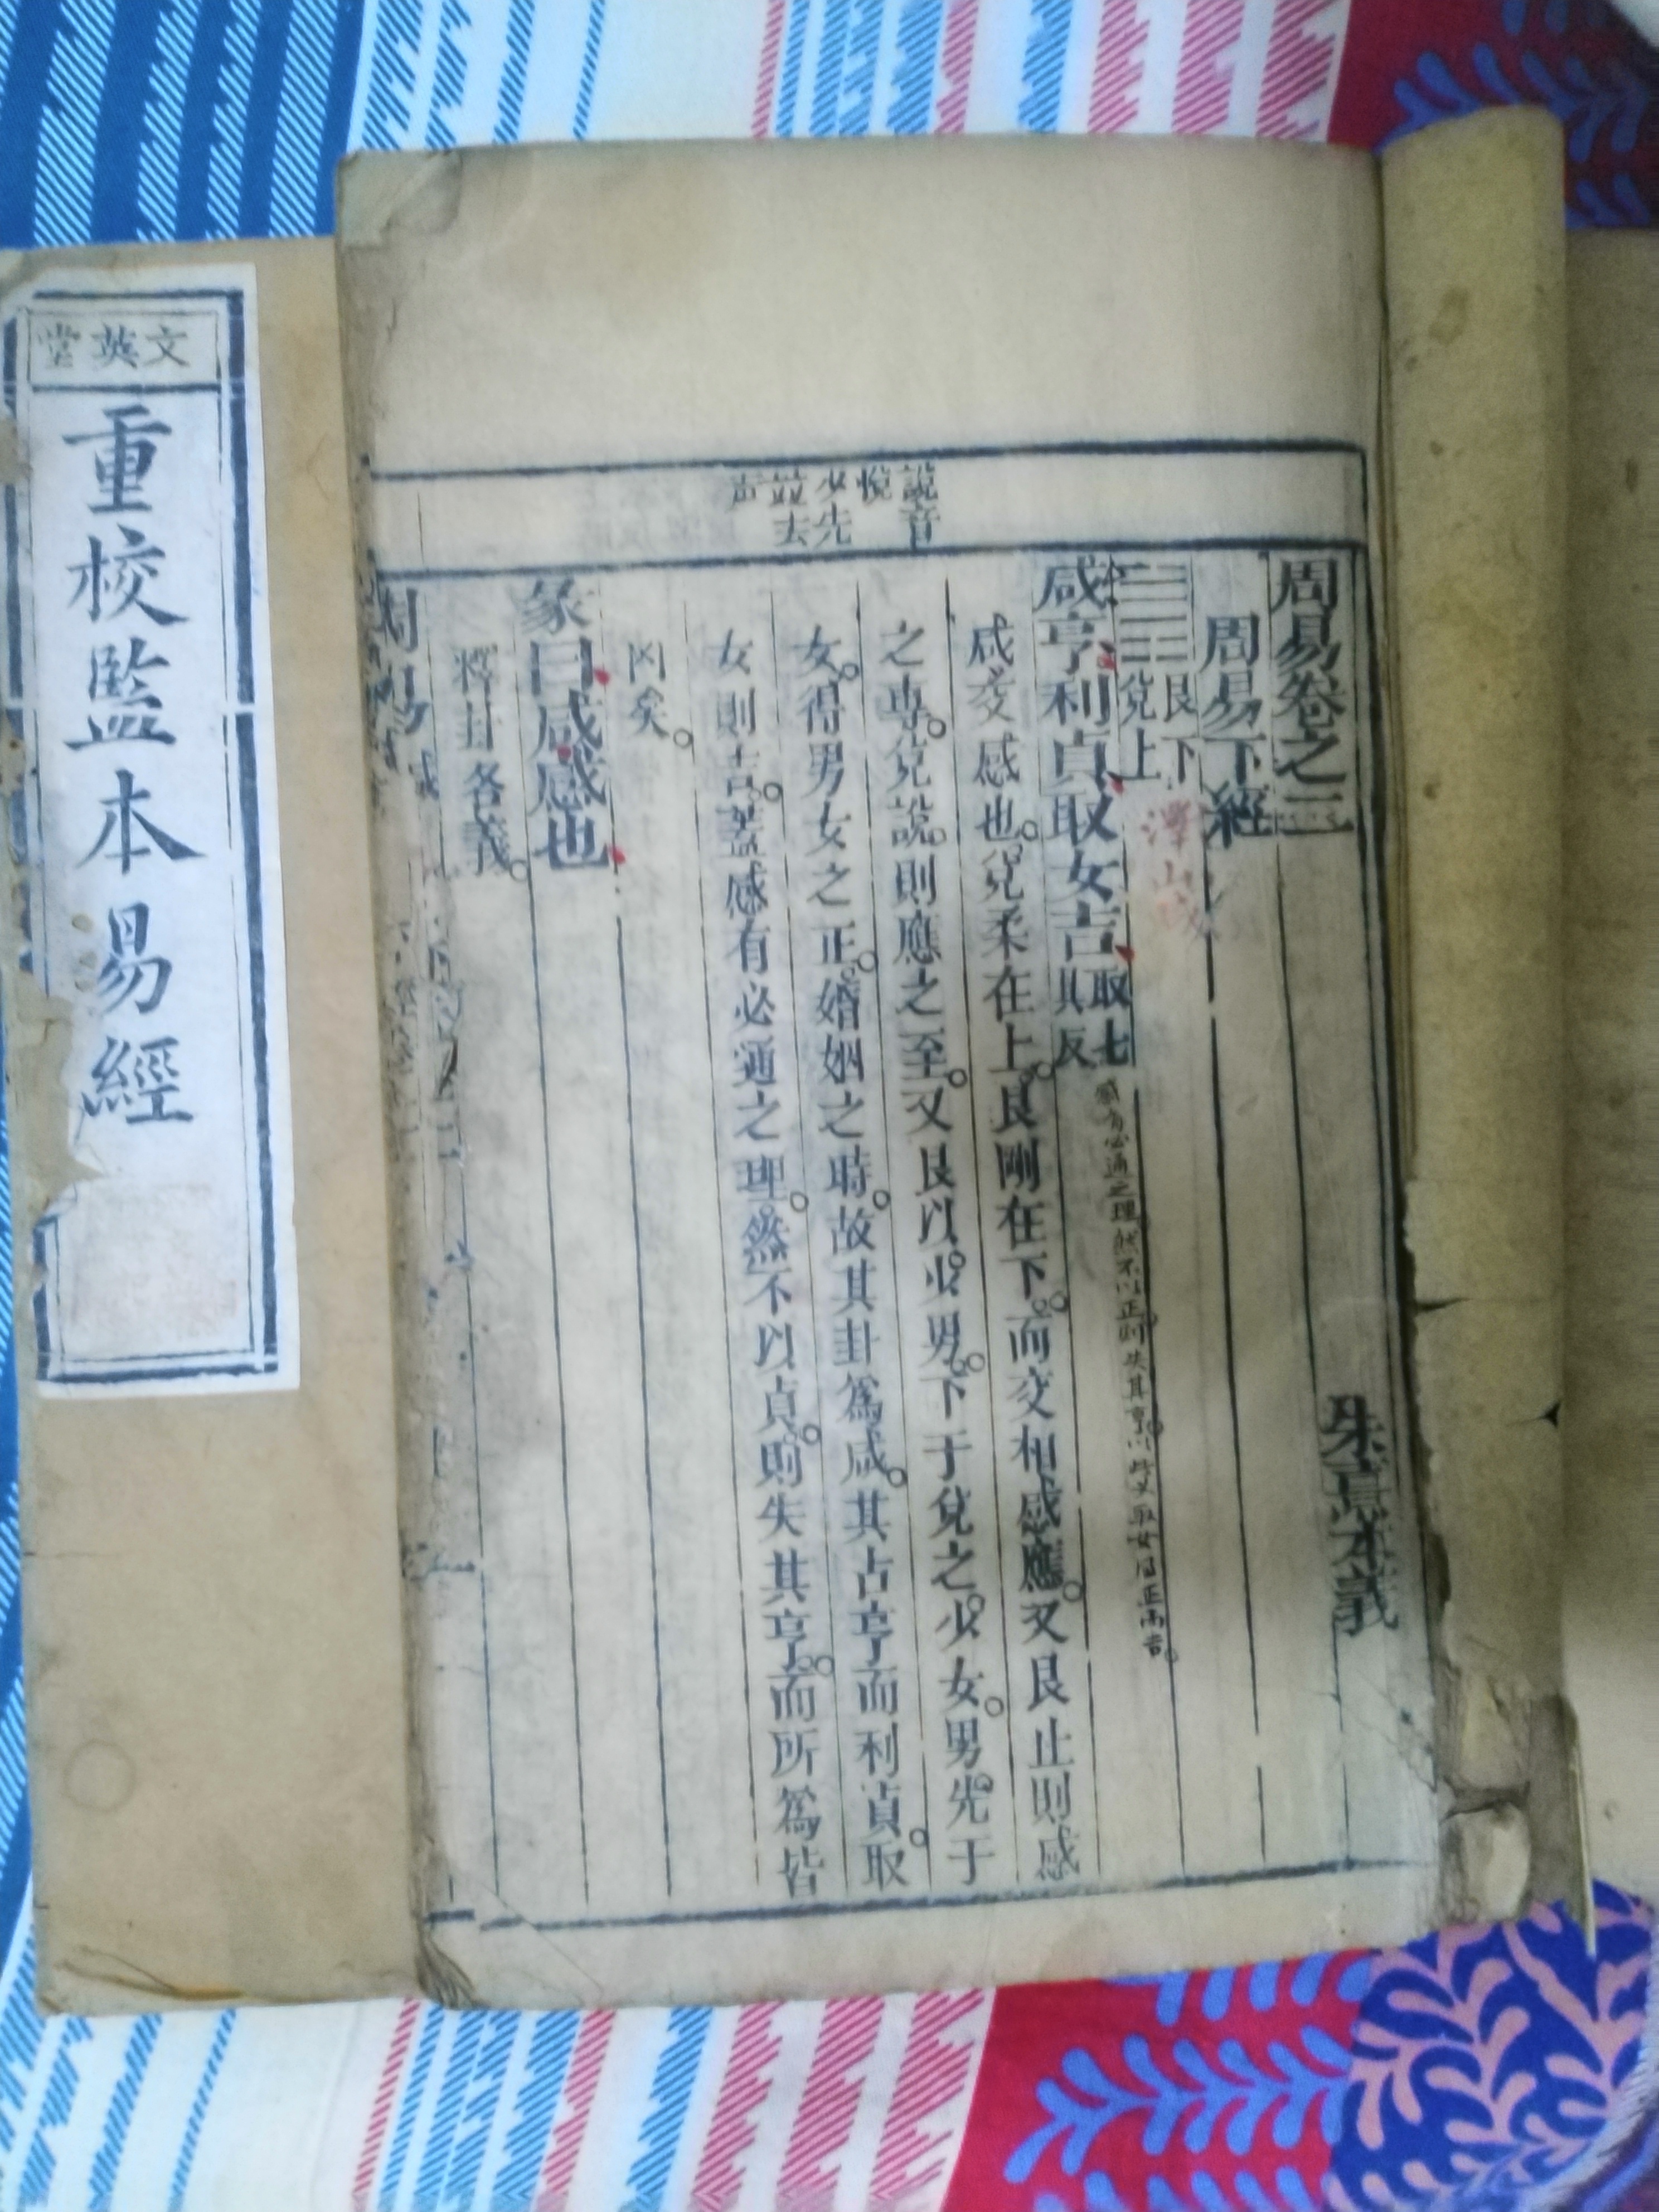 文英堂
重校監本易經
說音
悅
少先
竝去
声
周易卷之二
朱熹本義
周易下經
艮下
兌上
澤山咸
咸亨利貞取女吉
取七
具反
感有必通之理然不以正則失其亨
取女
正而吉
咸交感也兌柔在上艮剛在下而交相感應又艮止則感
之專兌說則應之至又艮以少男下于兌之少女男先于
女得男女之正婚姻之時故其卦爲咸其占亨而利貞取
女則吉蓋感有必通之理然不以貞則失其亨而所爲皆
凶矣
彖曰咸感也
釋卦各義
周易